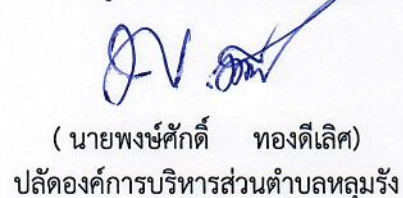 ( นายพงษ์ศักดิ์ ทองดีเลิศ)
ปลัดองค์การบริหารส่วนตำบลหลุมรัง